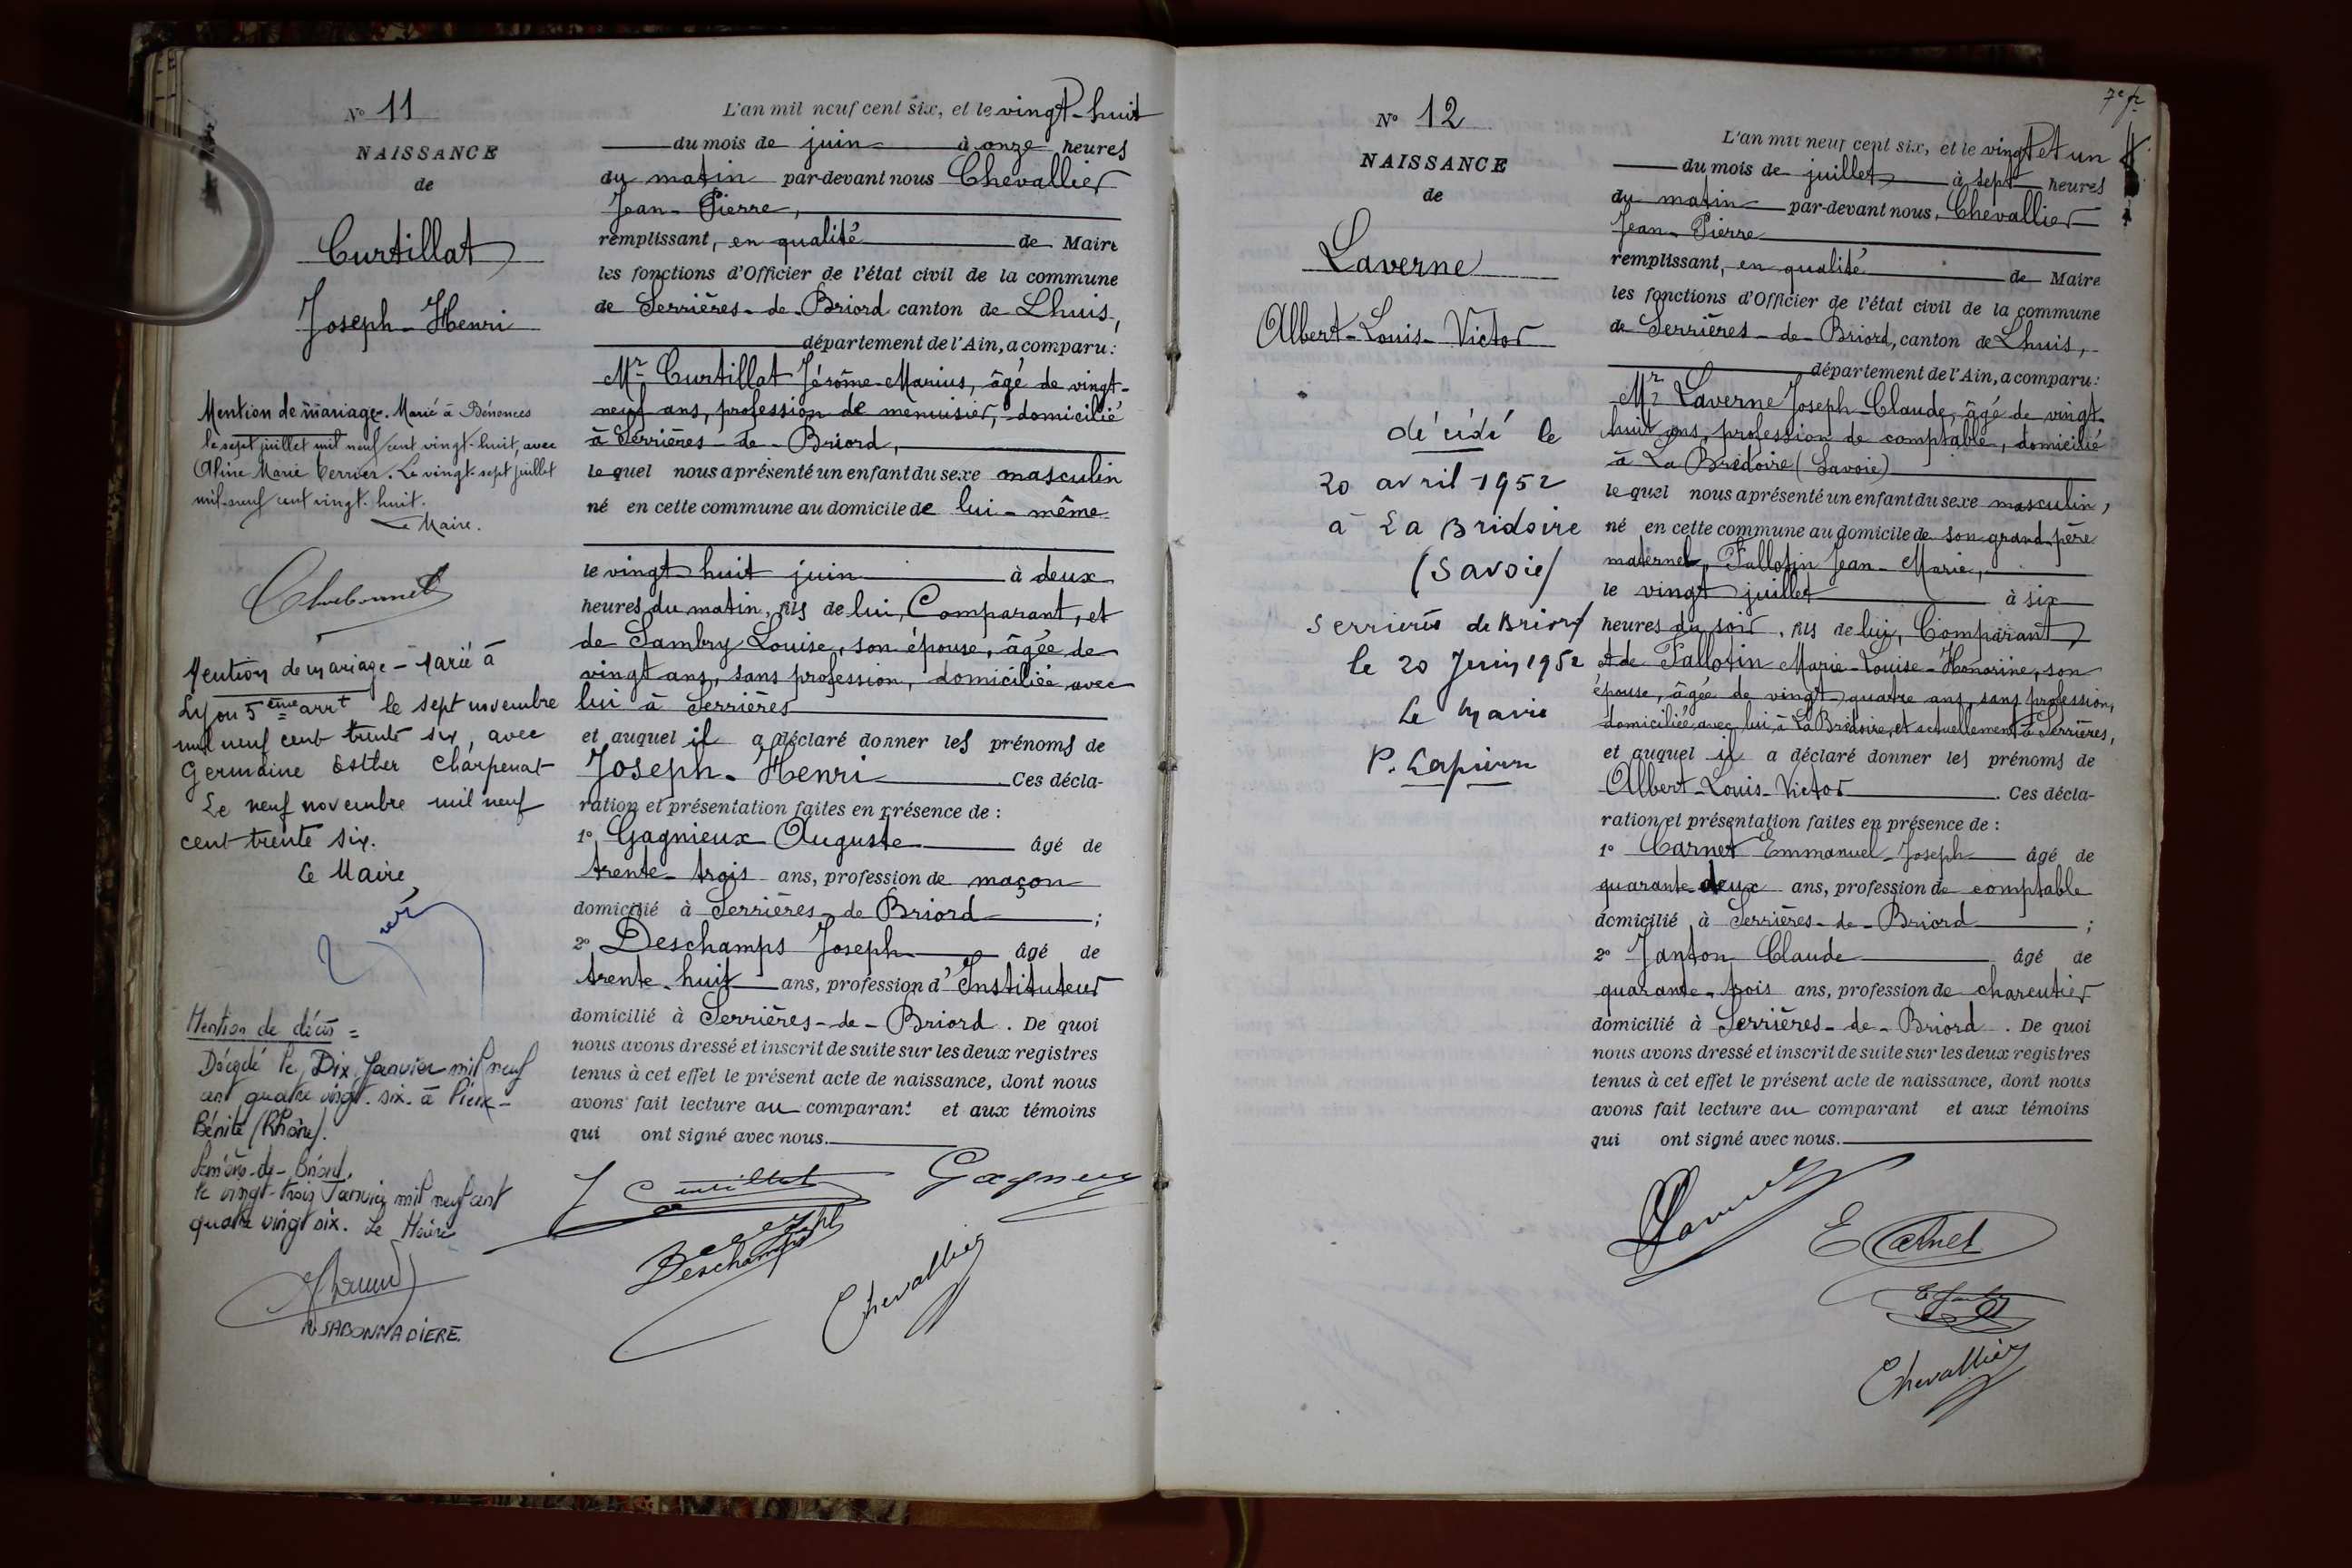 N° 11
NAISSANCE
de
Curtillat
Joseph-Henri
Mention de mariage. Marié à Bénonces
le sept juillet mil neuf cent vingt-huit, avec
Aline Marie Perrier. Le vingt-sept juillet
mil-neuf cent vingt-huit.
Le Maire.
Mention de mariage - Marié à
Lyon 5ème arrt le sept novembre
mil neuf cent trente six, avec
Germaine Esther Charpenat
Le neuf novembre mil neuf
cent trente six.
Le Maire
Mention de décès =
Décédé le Dix Janvier mil neuf
cent quatre vingt-six à Pierre-
Bénite (Rhône).
Serrières-de-Briord,
le vingt-trois Janvier mil neuf cent
quatre vingt six. Le Maire
SABONNADIERE.
L'an mil neuf cent six, et le vingt-huit
du mois de juin à onze heures
du matin par-devant nous Chevallier
Jean-Pierre,
remplissant, en qualité de Maire
les fonctions d'Officier de l'état civil de la commune
de Serrières-de-Briord canton de Lhuis,
département de l'Ain, a comparu:
Mr Curtillat Jérôme-Marius, âgé de vingt-
neuf ans, profession de menuisier, domicilié
à Serrières-de-Briord,
lequel nous a présenté un enfant du sexe masculin
né en cette commune au domicile de lui-même
le vingt huit juin à deux
heures du matin, fils de lui, Comparant, et
de Sambry Louise, son épouse, âgée de
vingt ans, sans profession, domiciliée avec
lui à Serrières
et auquel il a déclaré donner les prénoms de
Joseph-Henri Ces décla-
ration et présentation faites en présence de :
1° Gagnieux Auguste âgé de
trente-trois ans, profession de maçon
domicilié à Serrières-de-Briord ;
2° Deschamps Joseph âgé de
trente-huit ans, profession d'Instituteur
domicilié à Serrières-de-Briord. De quoi
nous avons dressé et inscrit de suite sur les deux registres
tenus à cet effet le présent acte de naissance, dont nous
avons fait lecture au comparant et aux témoins
qui ont signé avec nous.
J Curtillat Gagneux
Deschamps
Chevallier
7e fr
N° 12
NAISSANCE
de
Laverne
Albert-Louis-Victor
décédé le
20 avril 1952
à La Bridoire
(Savoie)
Serrières de Briord
le 20 Juin 1952
Le Maire
L'an mil neuf cent six, et le vingt et un
du mois de juillet à sept heures
du matin par-devant nous, Chevallier
Jean-Pierre
remplissant, en qualité de Maire
les fonctions d'Officier de l'état civil de la commune
de Serrières-de-Briord, canton de Lhuis,
département de l'Ain, a comparu:
Mr Laverne Joseph-Claude, âgé de vingt-
huit ans, profession de comptable, domicilié
à La Bridoire (Savoie)
lequel nous a présenté un enfant du sexe masculin,
né en cette commune au domicile de son grand-père
maternel, Fallotin Jean-Marie,
le vingt juillet à six
heures du soir, fils de lui, Comparant
et de Fallotin Marie-Louise-Honorine, son
épouse, âgée de vingt quatre ans, sans profession,
domiciliée avec lui, à La Bridoire, et actuellement à Serrières,
et auquel il a déclaré donner les prénoms de
Albert-Louis-Victor. Ces décla-
ration et présentation faites en présence de :
1° Carnet Emmanuel-Joseph âgé de
quarante-deux ans, profession de comptable
domicilié à Serrières-de-Briord ;
2° Janton Claude âgé de
quarante-trois ans, profession de charcutier
domicilié à Serrières-de-Briord. De quoi
nous avons dressé et inscrit de suite sur les deux registres
tenus à cet effet le présent acte de naissance, dont nous
avons fait lecture au comparant et aux témoins
qui ont signé avec nous.
E Carnet
Chevallier